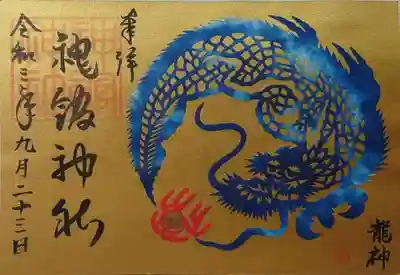 龍神
奉拝
神社
令和三年九月二十三日